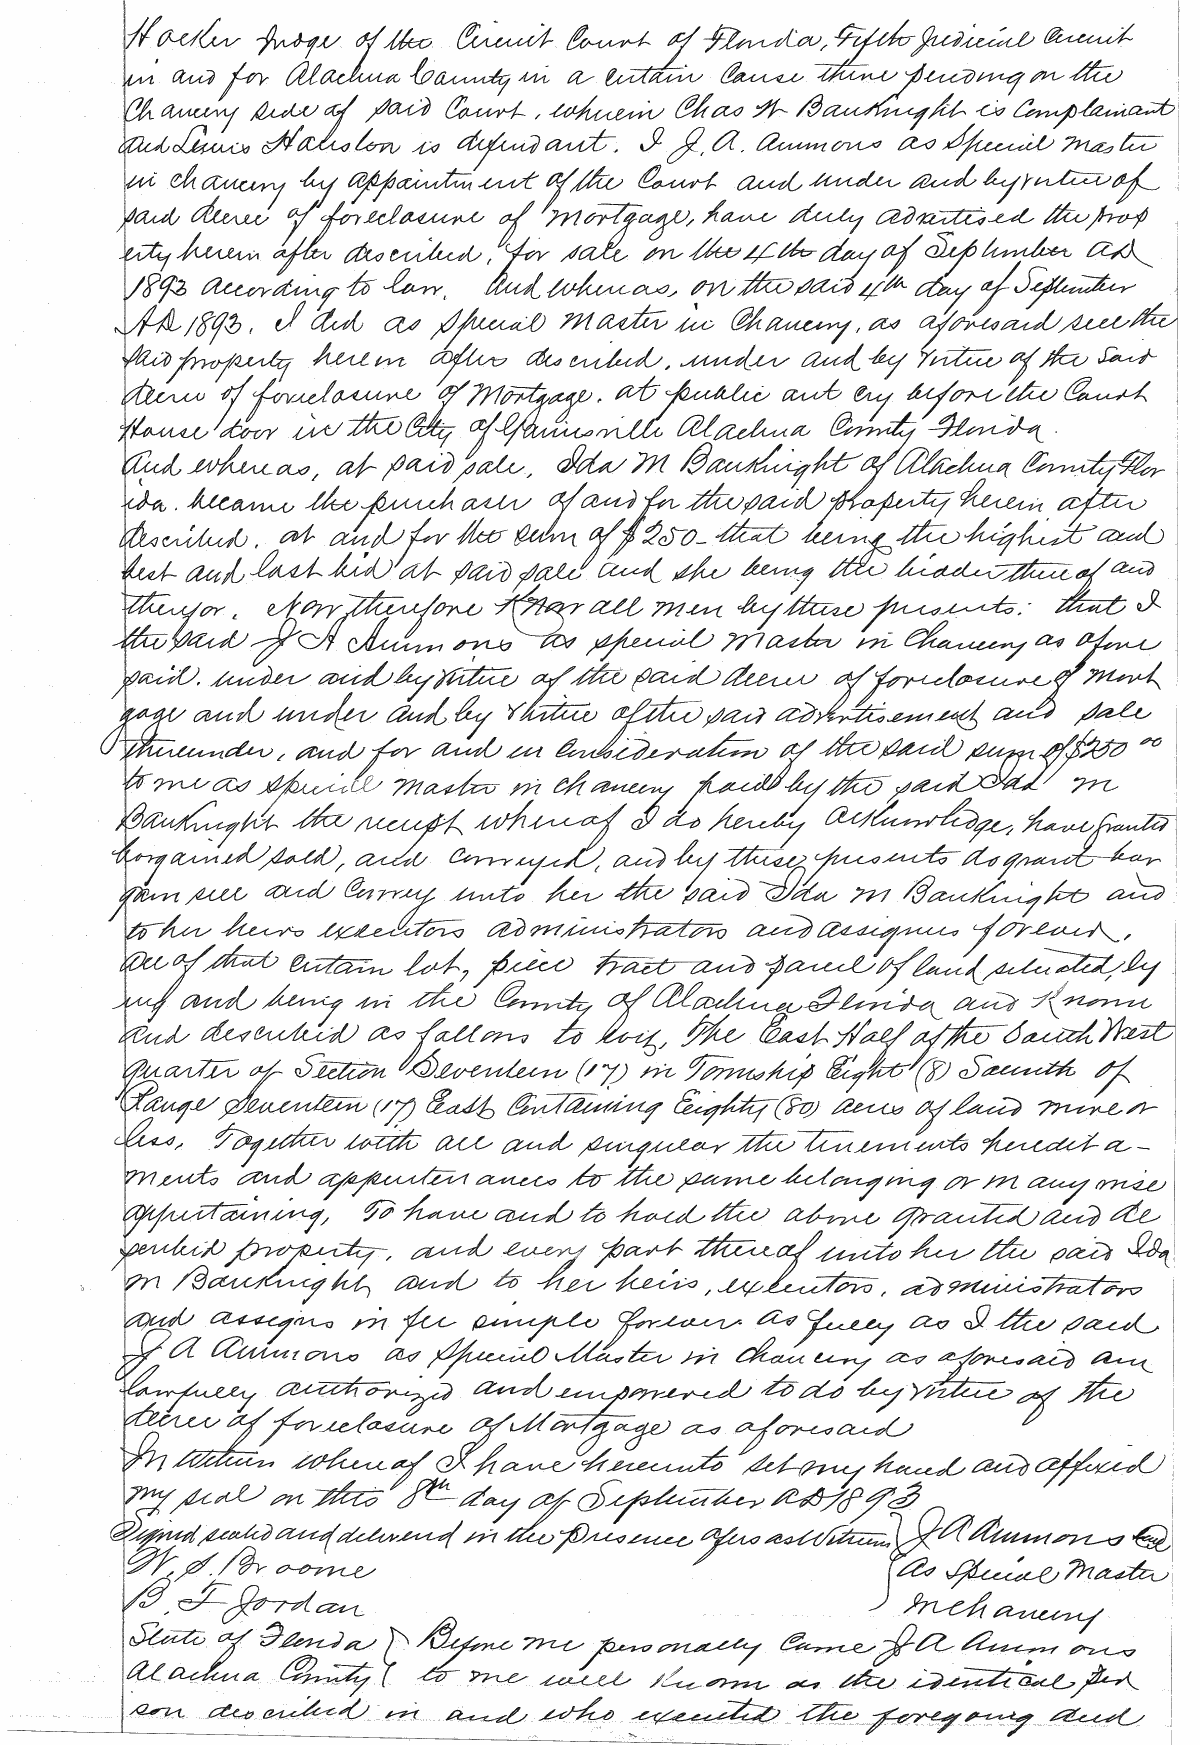 Hocker Judge of the Circuit Court of Florida, Fifth Judicial Circuit
in and for Alachua County in a certain Cause there pending on the
Chancery side of said Court, wherein Chas W Bauknight is Complainant
and Lewis Hauston is defendant. I J. A. Ammons as Special Master
in chancery by appointment of the Court and under and by virtue of
said decree of foreclosure of mortgage, have duly advertised the prop
erty herein after described, for sale on the 4th day of September AD
1893 according to law. And whereas, on the said 4th day of September
AD 1893, I did as Special Master in Chancery, as aforesaid sell the
said property herein after described, under and by virtue of the said
decree of foreclosure of Mortgage, at public out cry before the Court
House door in the City of Gainesville Alachua County Florida.
And whereas, at said sale, Ida M Bauknight of Alachua County Flor
ida. became the purchaser of and for the said property herein after
described, at and for the sum of $250- that being the highest and
best and last bid at said sale and she being the bidder thereof and
therefor. Now, therefore Know all men by these presents: that I
the said J A Ammons as special Master in Chancery as afore
said, under and by virtue of the said decree of foreclosure of Mort
gage and under and by virtue of the said advertisement and sale
thereunder, and for and in Consideration of the said sum of $250 00
to me as special master in chancery paid by the said Ida M
Bauknight the receipt whereof I do hereby acknowledge, have granted
bargained sold, and conveyed, and by these presents do grant bar
gain sell and Convey unto her the said Ida M Bauknight and
to her heirs executors administrators and assigns forever.
all of that certain lot, piece tract and parcel of land situated, ly
ing and being in the County of Alachua Florida and Known
and described as follows to wit, The East Half of the South West
quarter of Section Seventeen (17) in Township Eight (8) South of
Range Seventeen (17) East Containing Eighty (80) acres of land more or
less, Together with all and singular the tenements heredita-
ments and appurtenances to the same belonging or in any wise
appertaining, To have and to hold the above granted and de
scribed property, and every part thereof unto her the said Ida
M Bauknight and to her heirs, executors, administrators
and assigns in fee simple forever as fully as I the said
J A Ammons as Special Master in Chancery as aforesaid am
lawfully authorized and empowered to do by virtue of the
decree of foreclosure of Mortgage as aforesaid
In witness whereof I have hereunto set my hand and affixed
my seal on this 8th day of September AD 1893
Signed sealed and delivered in the presence of us as Witness J A Ammons Seal
W. S. Broome As Special Master
B. F Jordan in Chancery
State of Florida Before me personally Came J A Ammons
Alachua County to me well Known as the identical per
son described in and who executed the foregoing deed